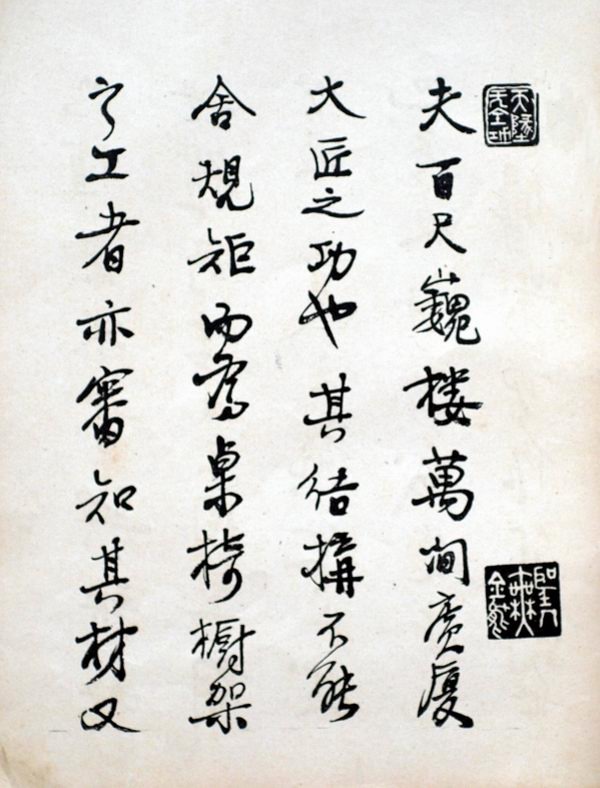 夫百尺巍楼萬間廣厦
大匠之功也其结搆不能
舍規矩而為桌椅橱架
之工者亦審知其材又